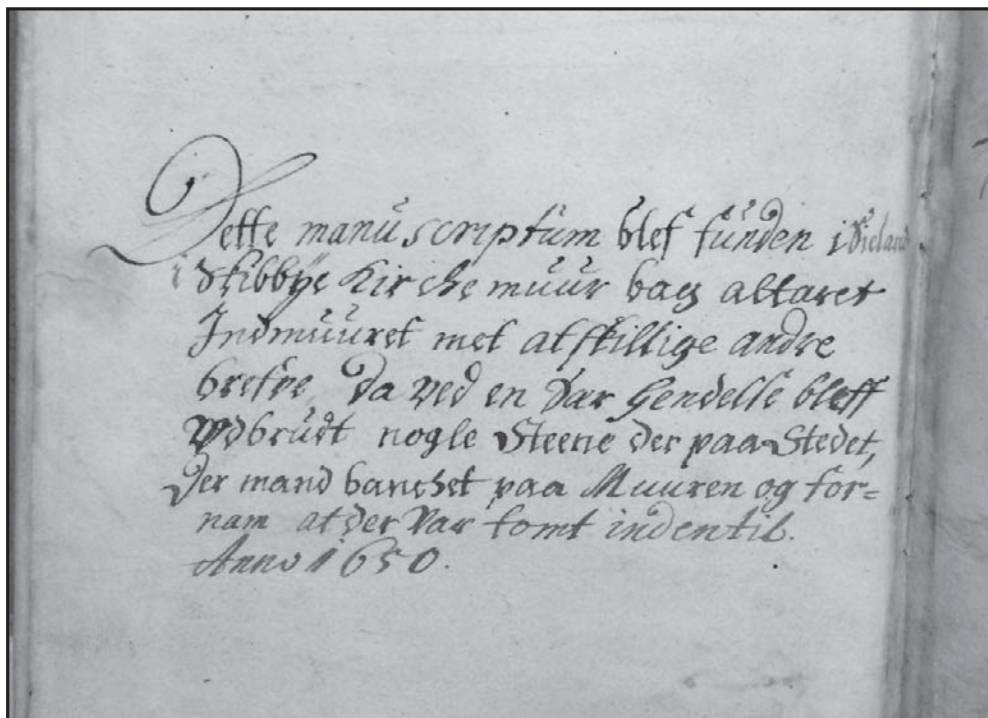 Dette manuscriptum blef funden i Sieland
i Skibbye Kirche muur bag altaret
Indmuuret met atskillige andre
brefve, da ved en var hendelse bleff
vdbrudt nogle Steene der paa Stedet,
Der mand banchet paa Muuren og for=
nam at der var tomt indentil.
Anno 1650.